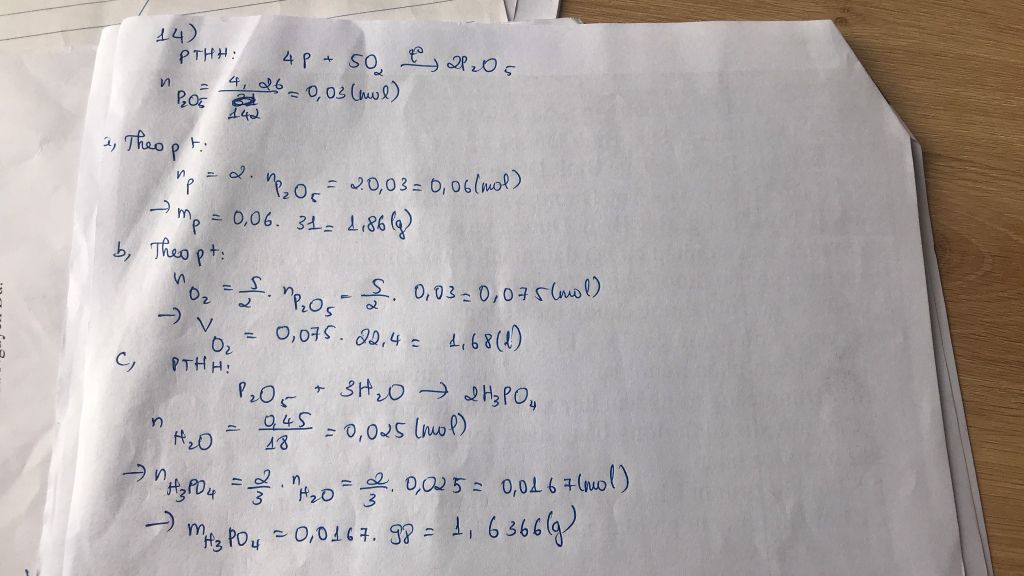 14)
PTHH: 4P + 5O₂ →(t°) 2P₂O₅
n P₂O₅ = 4,26/142 = 0,03 (mol)
a, Theo pt:
n_P = 2. n_P₂O₅ = 2.0,03 = 0,06 (mol)
→ m_P = 0,06. 31 = 1,86 (g)
b, Theo pt:
n_O₂ = 5/2 . n_P₂O₅ = 5/2 . 0,03 = 0,075 (mol)
→ V_O₂ = 0,075. 22,4 = 1,68 (l)
c, PTHH:
P₂O₅ + 3H₂O → 2H₃PO₄
n_H₂O = 0,45/18 = 0,025 (mol)
→ n_H₃PO₄ = 2/3 . n_H₂O = 2/3 . 0,025 = 0,0167 (mol)
→ m_H₃PO₄ = 0,0167. 98 = 1,6366 (g)